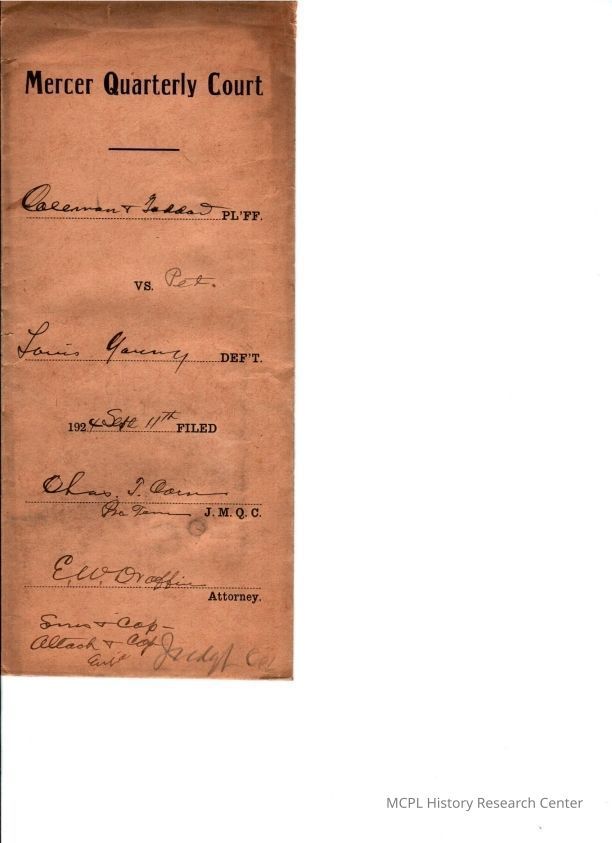 Mercer Quarterly Court
Coleman & Goddard PL'FF.
VS. Pet.
Louis Young DEF'T.
1924 Sept 11th FILED
Chas. T. Corn
Pro Tem J. M. Q. C.
E. W. Draffin
Attorney.
Sums & Cop
Attach & Cop
Judgt
MCPL History Research Center